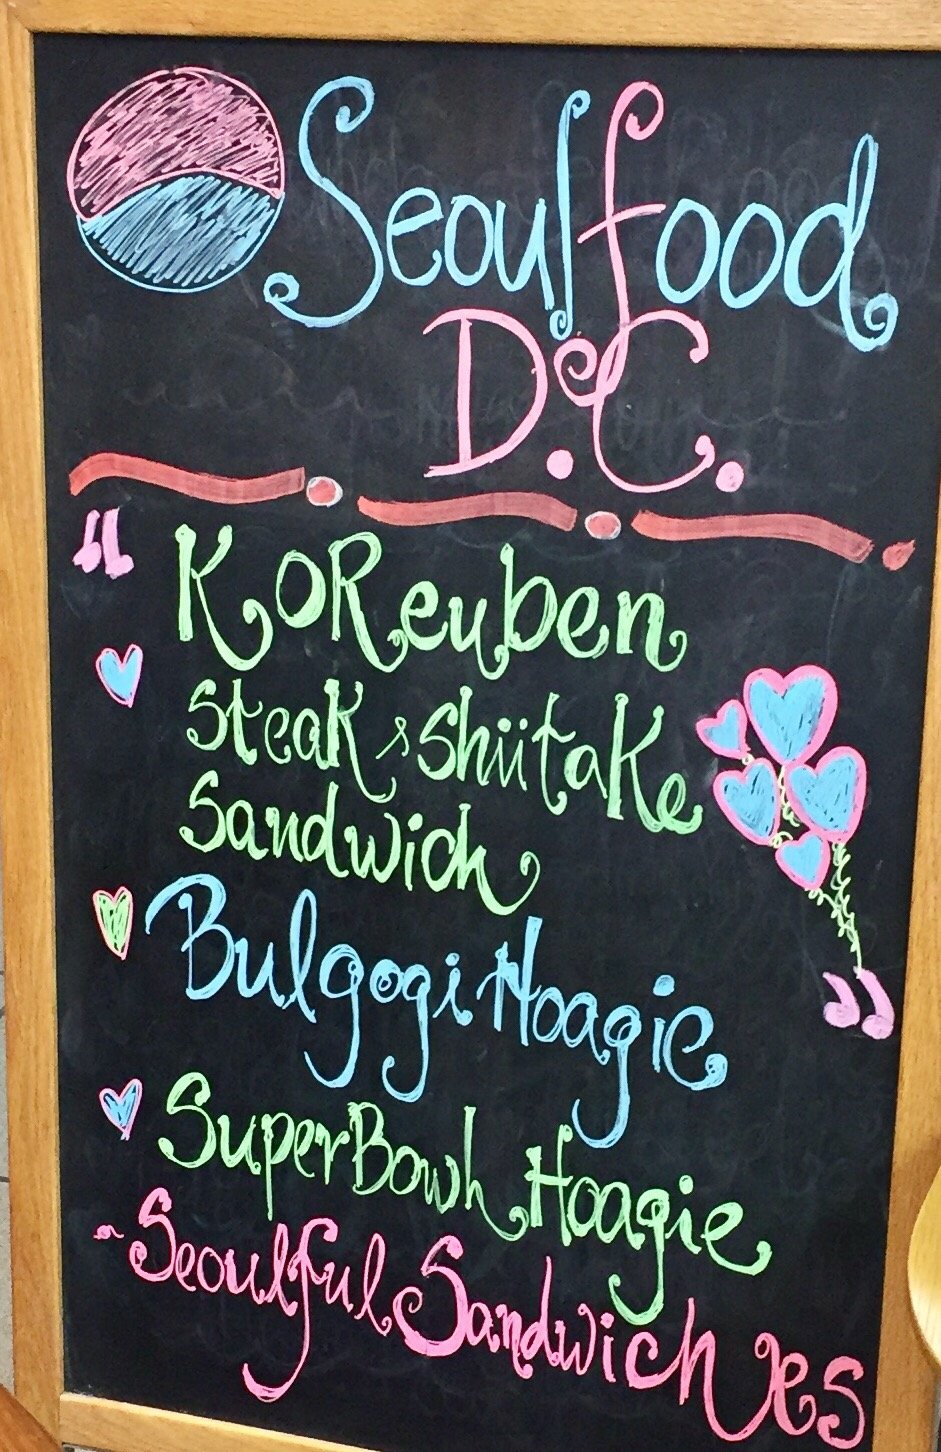 Seoulfood
D.C.
"KOReuben
Steak & Shiitake
Sandwich
Bulgogi Hoagie"
SuperBowl Hoagie
~Seoulful Sandwiches